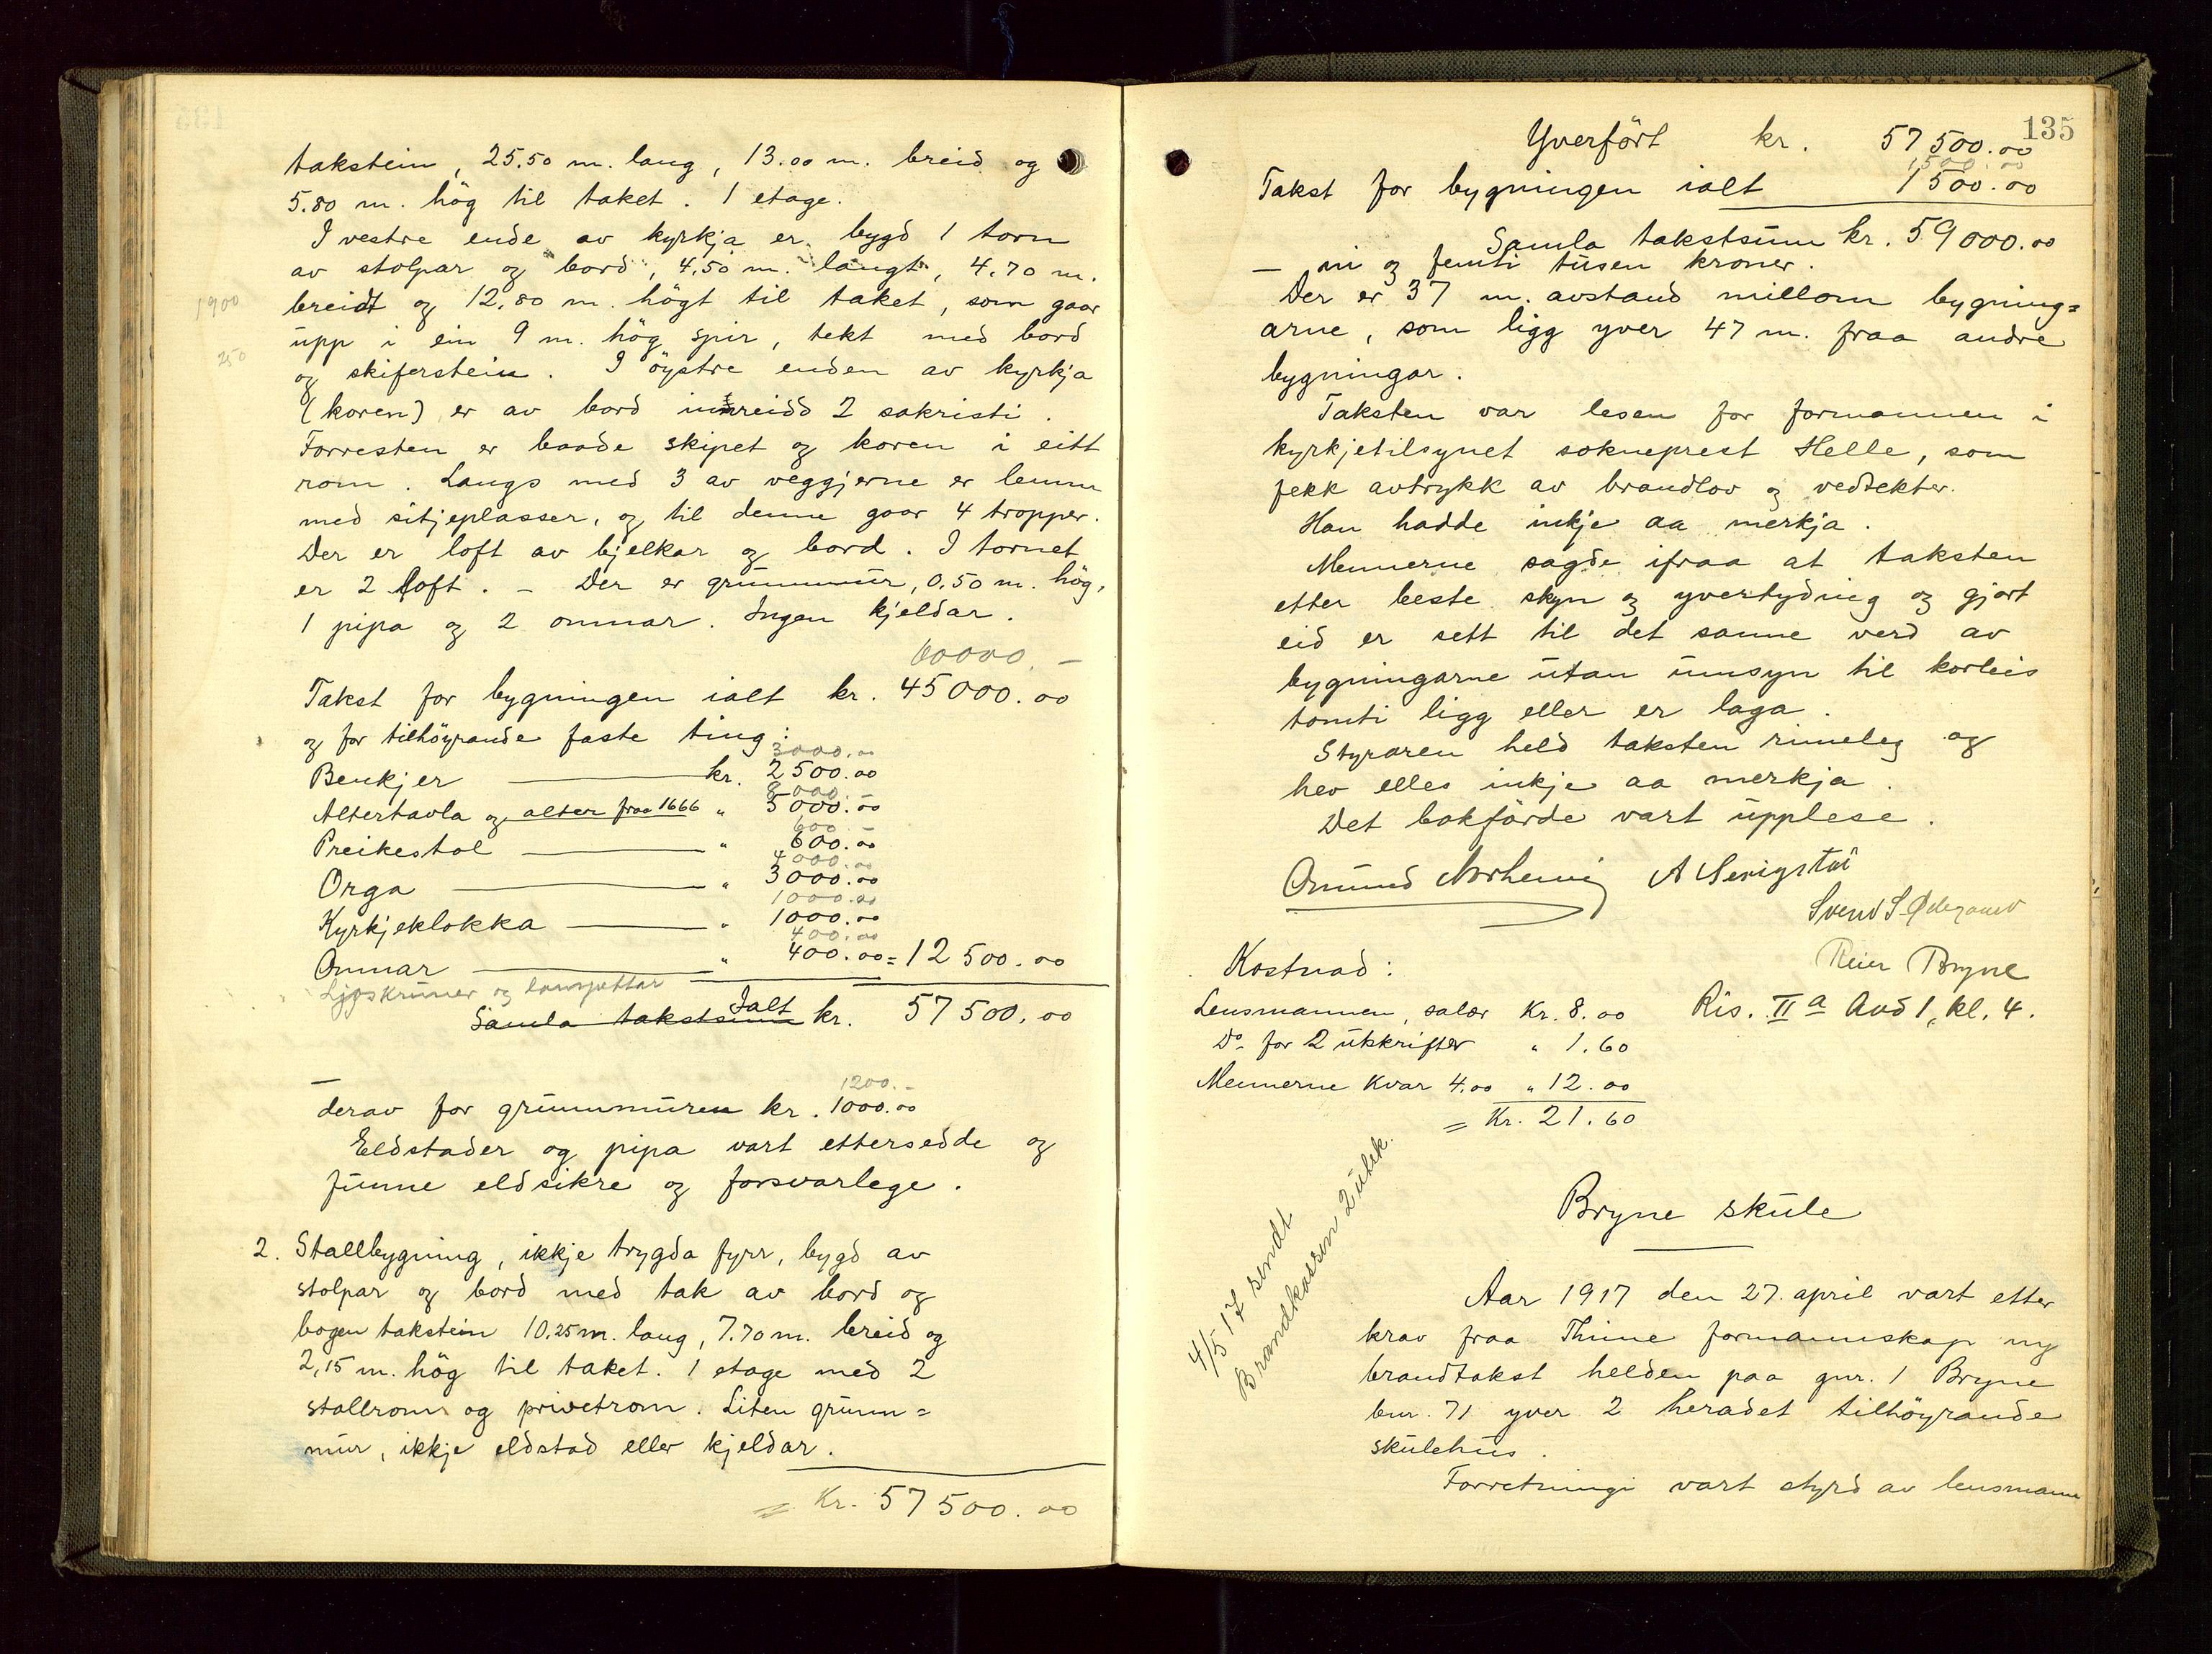 takstein, 25.50 m. lang, 13.00 m. breid og
5.80 m. hög til taket. 1 etage.
I vestre ende av kyrkja er bygd 1 torn
av stolpar og bord, 4,50 m. langt, 4,70 m.
1900
breidt og 12,80 m. högt til taket, som gaar
upp i ein 9 m. hög spir, tekt med bord
250
og skiferstein. I öystre enden av kyrkja
(koren) er av bord innreidd 2 sakristi.
Forresten er baade skipet og koren i eitt
rom. Langs med 3 av veggjerne er lemm
med sitjeplasser, og til denne gaar 4 tropper.
Der er loft av bjelkar og bord. I tornet
er 2 loft. – Der er grunnmur, 0,50 m. hög,
1 pipa og 2 omnar. Ingen kjeldar.
60000. –
Takst for bygningen ialt kr. 45000.00
og for tilhöyrande faste ting:
3000.00
Benkjer kr. 2500.00
8000. –
Altertavla og alter fraa 1666 " 5000.00
600 –
Preikestol " 600.00
4000.00
Orga " 3000.00
1000.00
Kyrkjeklokka " 1000.00
400.00
Omnar " 400.00 = 12500.00
Ljoskruner og lampettar
Samla takstsum Ialt kr. 57500.00
1200. –
derav for grunnmuren kr. 1000.00
Eldstader og pipa vart ettersedde og
funne eldsikre og forsvarlege.
2. Stallbygning, ikkje trygda fyrr, bygd av
stolpar og bord med tak av bord og
bogen takstein 10.25 m. lang, 7.70 m. breid og
2,15 m. hög til taket. 1 etage med 2
stallrom og privetrom. Liten grunn=
mur, ikkje eldstad eller kjeldar.
= Kr. 57500.00
135
Yverfört kr. 57500.00
1500.00
Takst for bygningen ialt 1500.00
Samla takstsum kr. 59000.00
– ni og femti tusen kroner.
Der er 37 m. avstand millom bygning=
arne, som ligg yver 47 m. fraa andre
bygningar.
Taksten var lesen for formannen i
kyrkjetilsynet sokneprest Helle, som
fekk avtrykk av brandlov og vedtekter.
Han hadde inkje aa merkja.
Mennerne sagde ifraa at taksten
etter beste skyn og yvertyding og gjort
eid er sett til det sanne verd av
bygningarne utan umsyn til korleis
tomti ligg eller er laga.
Styraren held taksten rimeleg og
hev elles inkje aa merkja.
Det bokförde vart upplese.
Omund Norheim A Serigstad
Svend S. Ødegaard
Kostnad: Reier Bryne
Lensmannen, salær Kr. 8.00 Ris. II a Avd 1, kl. 4.
Do for 2 utskrifter " 1.60
Mennerne kvar 4.00 " 12.00
= Kr. 21.60
4/5 17 sendt
Brandkassen 2 utsk.
Bryne skule
Aar 1917 den 27. april vart etter
krav fraa Thime formannskap ny
brandtakst helden paa gnr. 1 Bryne
bnr. 71 yver 2 heradet tilhöyrande
skulehus.
Forretningi vart styrd av lensmann